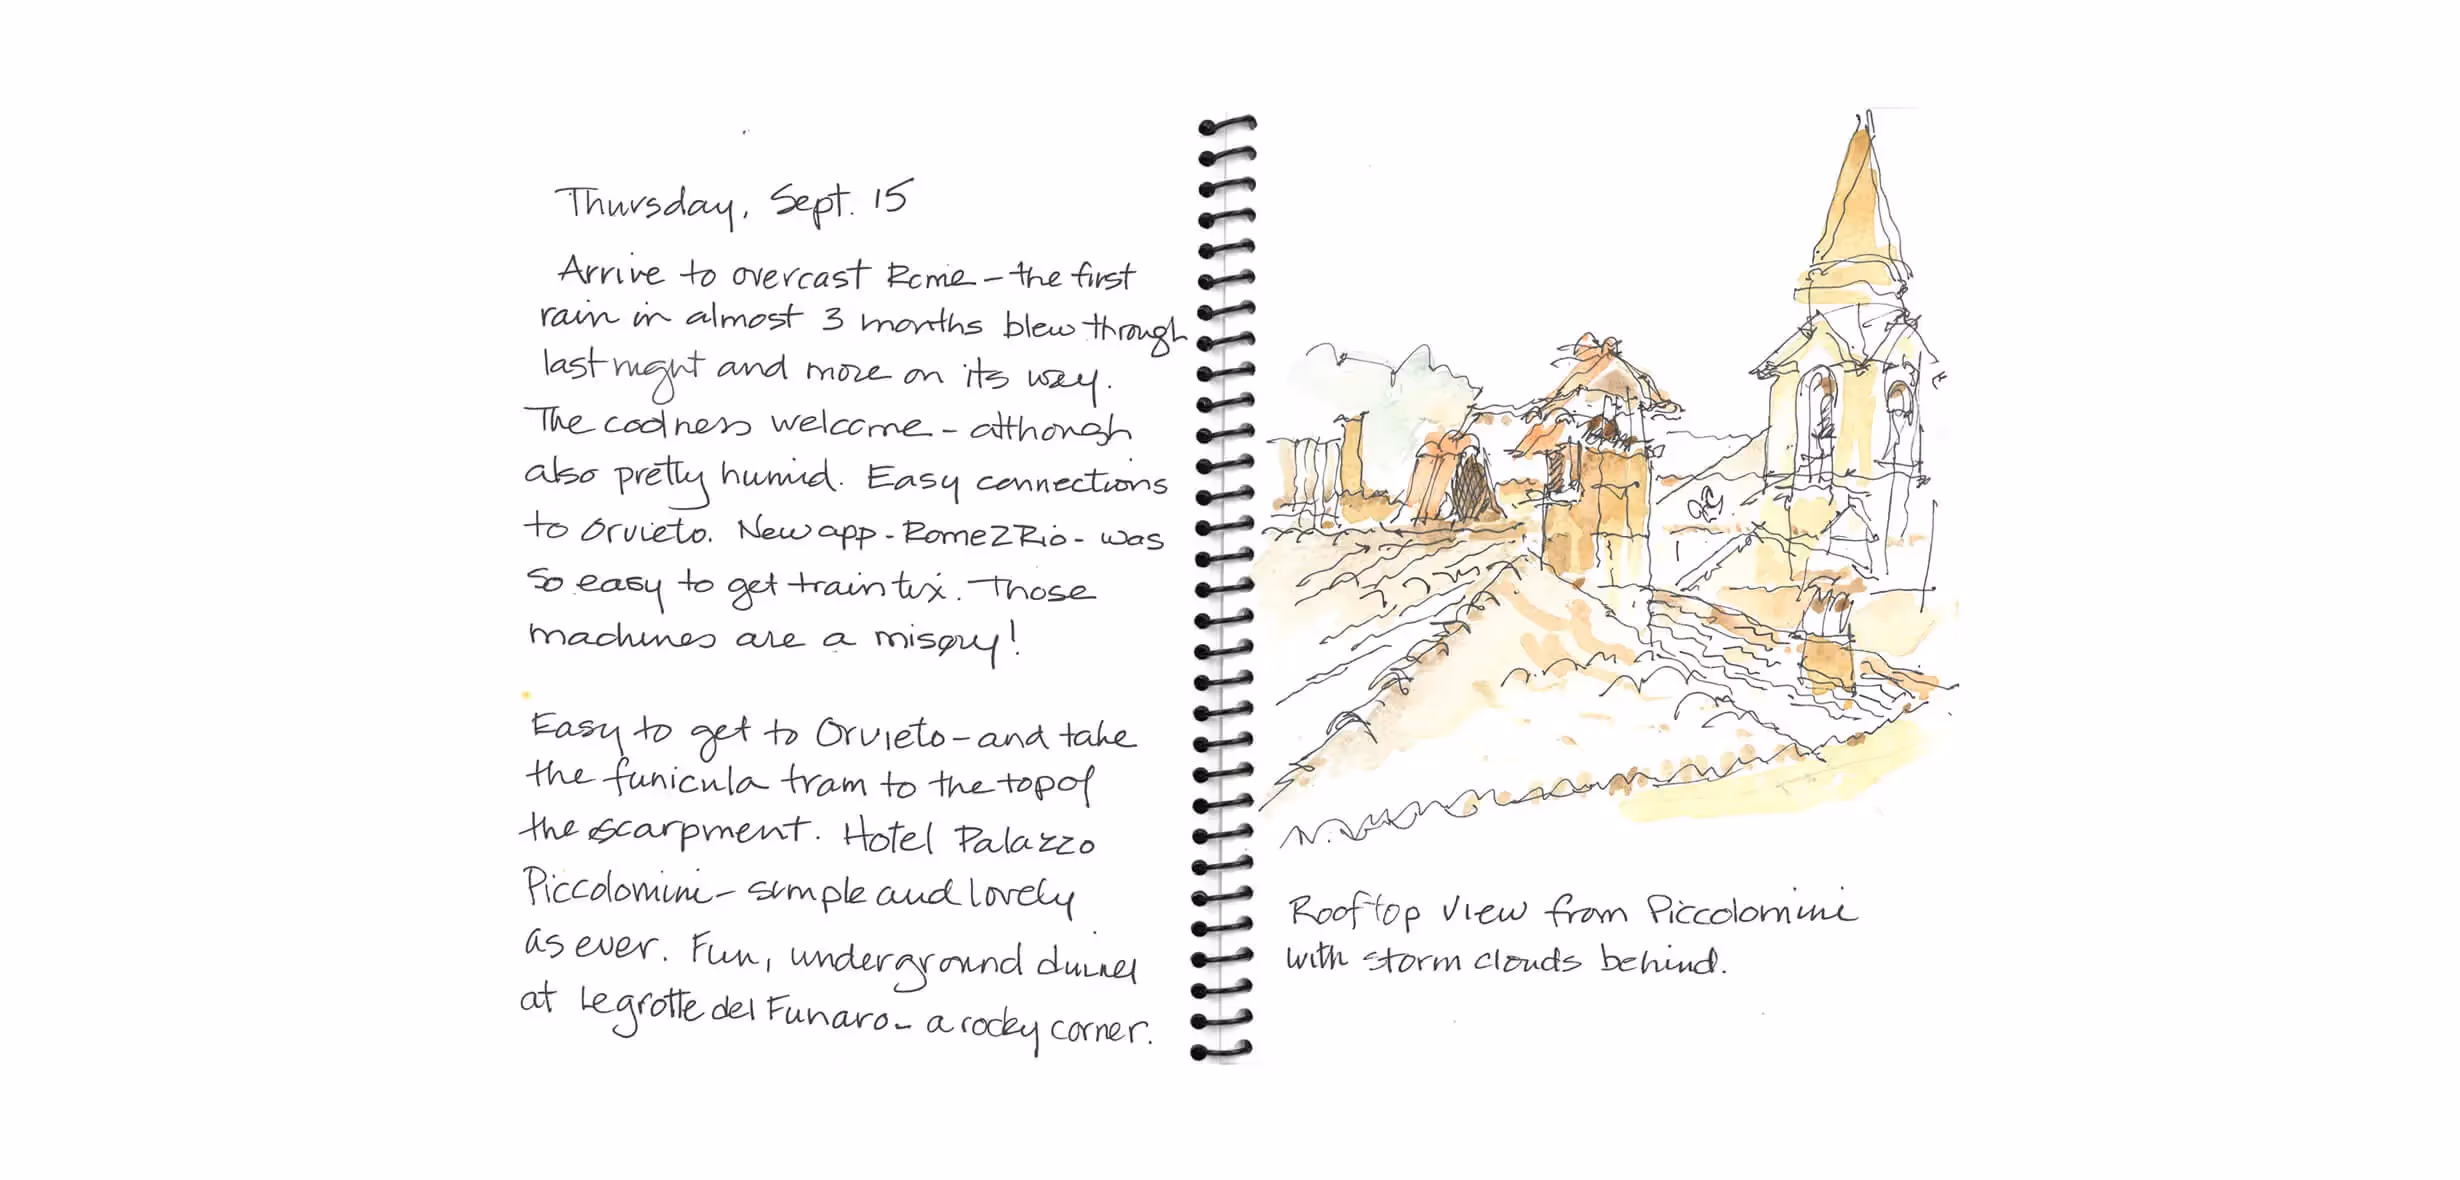 Thursday, Sept. 15
Arrive to overcast Rome – the first
rain in almost 3 months blew through
last night and more on its way.
The coolness welcome – although
also pretty humid. Easy connections
to Orvieto. New app - Rome2Rio - was
so easy to get train tix. Those
machines are a misery!
Easy to get to Orvieto – and take
the funicula tram to the top of
the scarpment. Hotel Palazzo
Piccolomini – simple and lovely
as ever. Fun, underground dinner
at Le grotte del Funaro – a rocky corner.
Rooftop view from Piccolomini
with storm clouds behind.